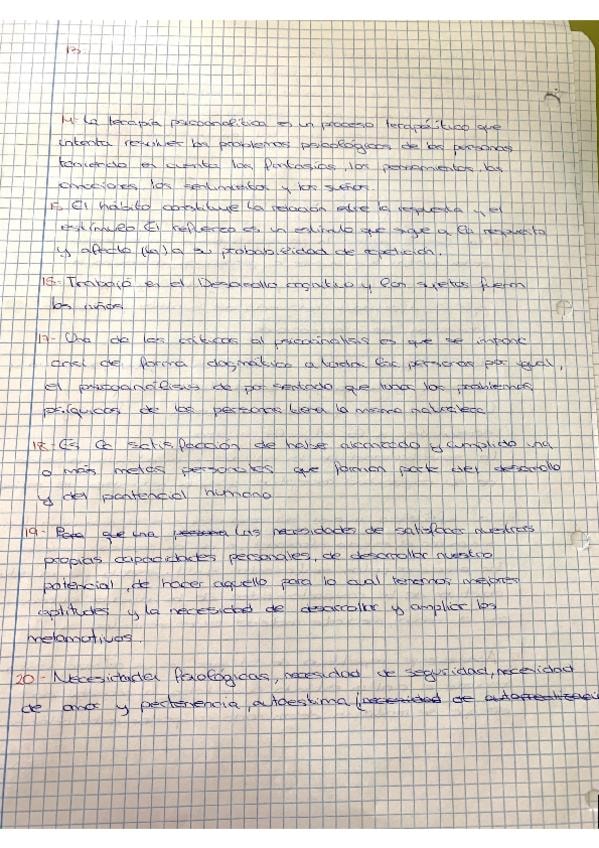 13.
14- La terapia psicoanalítica es un proceso terapéutico que
intenta resolver los problemas psicológicos de las personas
teniendo en cuenta las fantasías, los pensamientos, las
emociones, los sentimientos y los sueños.
15- El hábito constituye la relación entre la respuesta y el
estímulo El reflejo es un estímulo que sigue a la respuesta
y afecta (la) a su probabilidad de repetición.
16- Trabajó en el Desarrollo cognitivo y los sujetos fueron
los niños
17- Una de las críticas al psicoanálisis es que se impone
de forma dogmática a todas las personas por igual,
el psicoanálisis da por sentado que todos los problemas
psíquicos de las personas tiene la misma naturaleza
18- Es la satisfacción de haber alcanzado y cumplido una
o más metas personales que forman parte del desarrollo
y del pontencial humano
19- Para que una persona Las necesidades de satisfacer nuestras
propias capacidades personales, de desarrollar nuestro
potencial, de hacer aquello para lo cual tenemos mejores
aptitudes y la necesidad de desarrollar y ampliar los
metamotivos.
20- Necesidades fisiológicas, necesidad de seguridad, necesidad
de amor y pertenencia, autoestima (necesidad de autorrealización